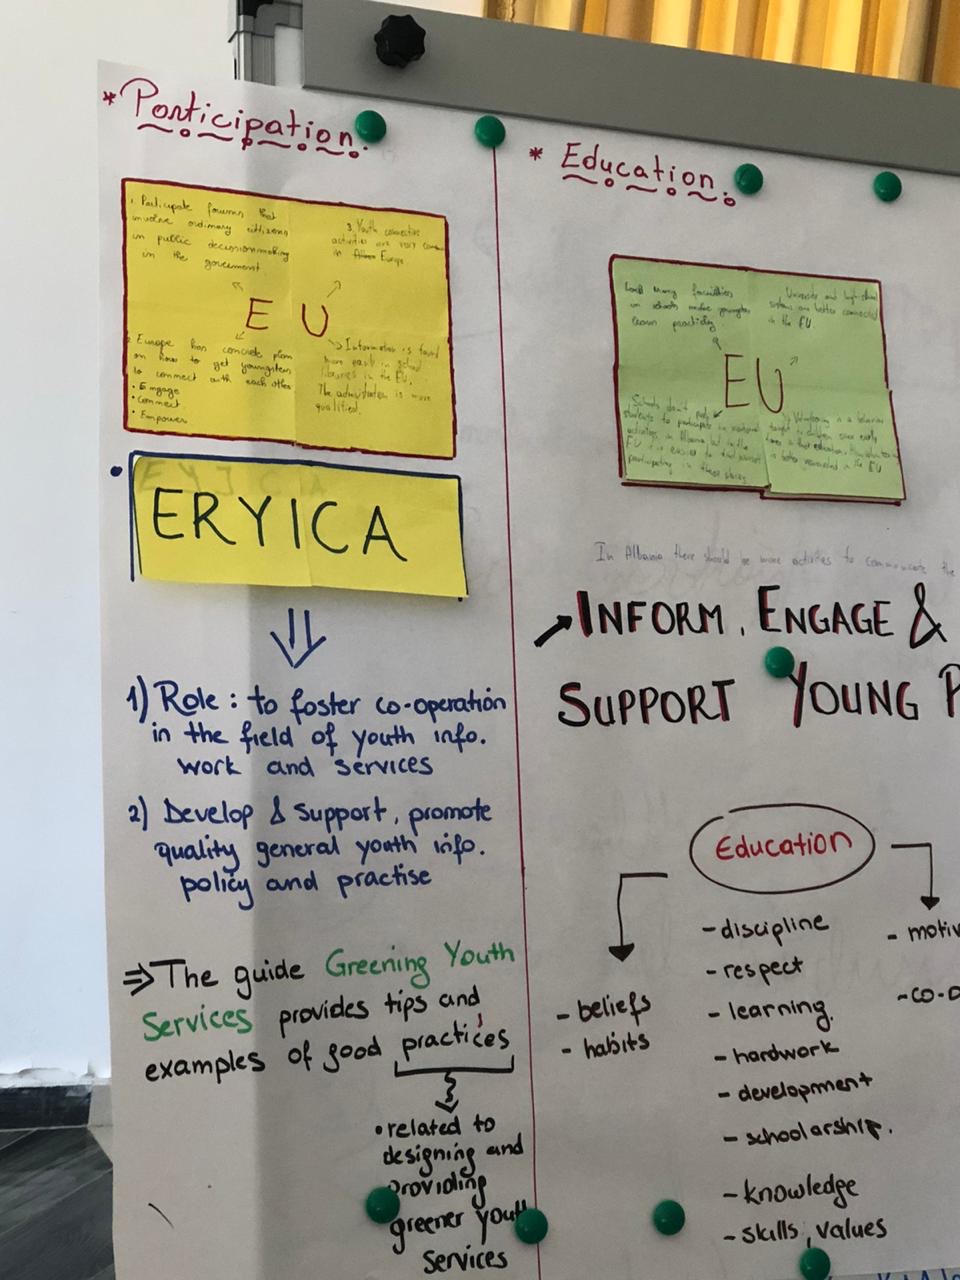 * Participation.
1. Participate forums that
involve ordinary citizens
in public decisionmaking
in the government
3. Youth connective
activities are very
in Europe
E U
Europe has concrete plan
on how to get youngsters
to connect with each other
• Engage
• Connect
• Empower
Information is found
more easily in school
libraries in the EU.
The administration is more
qualified.
ERYICA
1) Role : to foster co-operation
in the field of youth info.
work and services
2) Develop & Support, promote
quality general youth info.
policy and practise
⇒ The guide Greening Youth
Services provides tips and
examples of good practices
• related to
designing and
providing
greener youth
services
* Education.
many facilities
in schools make youngsters
learn
University and high-school
systems are better connected
in the EU
EU
Schools don't
students to participate in
activities in Albania but in the
EU it is easier to find
participating in these
is a
children since early
in the EU
In Albania there should be more activities to communicate the
INFORM, ENGAGE &
SUPPORT YOUNG P
Education
- beliefs
- habits
- discipline
- respect
- learning.
- hardwork
- development
- schoolarship.
- knowledge
- skills, values
- motiv
- co-o